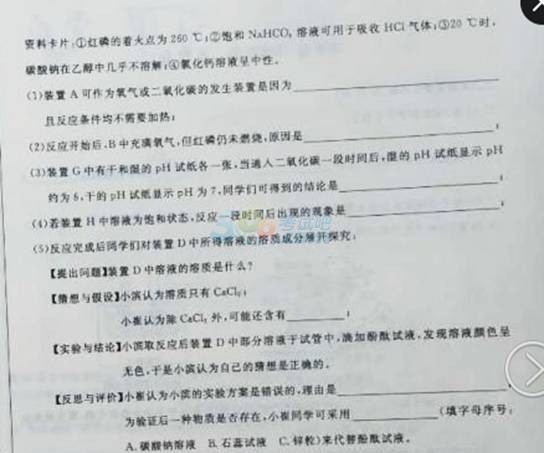 资料卡片:①红磷的着火点为260 ℃;②饱和 NaHCO₃ 溶液可用于吸收 HCl 气体;③20 ℃时,
碳酸钠在乙醇中几乎不溶解;④氯化钙溶液呈中性。
(1)装置 A 可作为氧气或二氧化碳的发生装置是因为
且反应条件均不需要加热;
(2)反应开始后,B 中充满氧气,但红磷仍未燃烧,原因是 ;
(3)装置 G 中有干和湿的 pH 试纸各一张,当通入二氧化碳一段时间后,湿的 pH 试纸显示 pH
约为 6,干的 pH 试纸显示 pH 为 7,同学们可得到的结论是 ;
(4)若装置 H 中溶液为饱和状态,反应一段时间后出现的现象是 ;
(5)反应完成后同学们对装置 D 中所得溶液的溶质成分展开探究:
【提出问题】装置 D 中溶液的溶质是什么?
【猜想与假设】小滨认为溶质只有 CaCl₂;
小崔认为除 CaCl₂ 外,可能还含有 ;
【实验与结论】小滨取反应后装置 D 中部分溶液于试管中,滴加酚酞试液,发现溶液颜色呈
无色,于是小滨认为自己的猜想是正确的。
【反思与评价】小崔认为小滨的实验方案是错误的,理由是 ,
为验证后一种物质是否存在,小崔同学可采用 (填字母序号:
A. 碳酸钠溶液 B. 石蕊试液 C. 锌粒)来代替酚酞试液。
考试吧